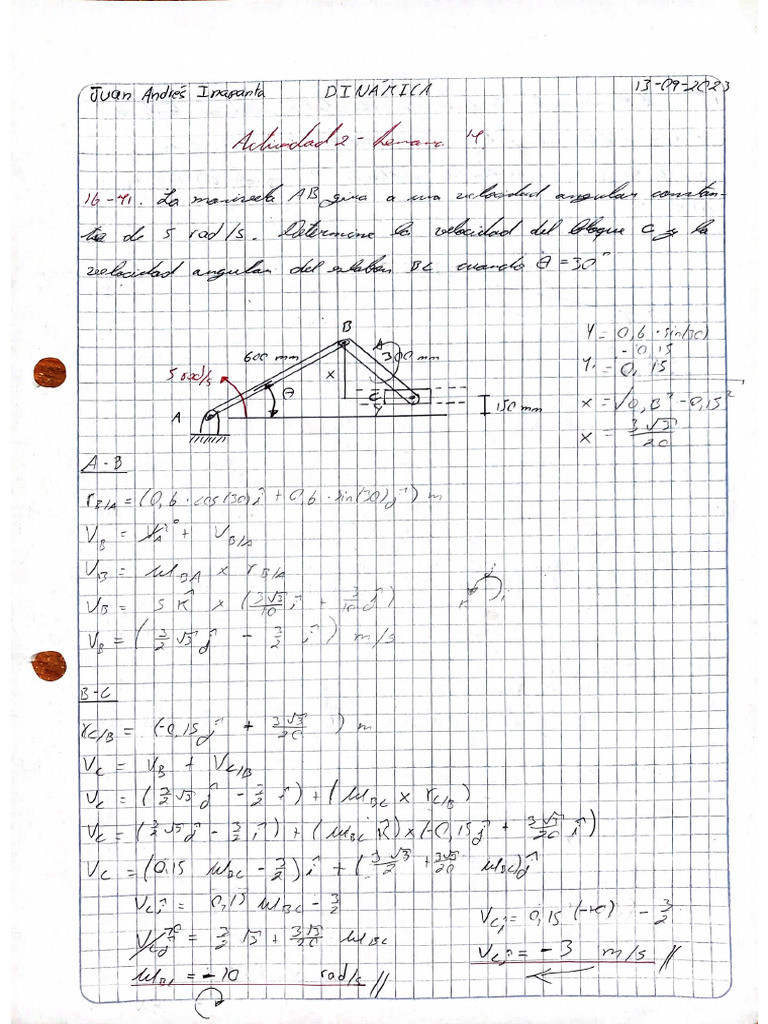 Juan Andrés Inapanta DINÁMICA 13-09-2023
Actividad 2 - Semana 14
16-71. La manivela AB gira a una velocidad angular constan-
te de 5 rad/s. Determine la velocidad del bloque C y la
velocidad angular del eslabón BC cuando θ = 30°
B
600 mm
300 mm
5 rad/s
θ
x
A
C
Y
150 mm
Y = 0,6 · sin(30)
- 0,15
Y = 0,15
x = √0,3² - 0,15²
x = 3√3/20
A - B
r_B/A = (0,6 · cos(30)î + 0,6 · sin(30)ĵ) m
V_B = V_A + V_B/A
V_B = ω_BA x r_B/A
V_B = 5 k̂ x (3√3/10 î + 3/10 ĵ)
V_B = (3/2 √3 ĵ - 3/2 î) m/s
B-C
r_C/B = (-0,15 ĵ + 3√3/20 ) m
V_C = V_B + V_C/B
V_C = (3/2 √3 ĵ - 3/2 î) + (ω_BC x r_C/B)
V_C = (3/2 √3 ĵ - 3/2 î) + (ω_BC k̂) x (-0,15 ĵ + 3√3/20 î)
V_C = (0,15 ω_BC - 3/2) î + (3√3/2 + 3√3/20 ω_BC) ĵ
V_Cî = 0,15 ω_BC - 3/2
V_Cĵ = 3/2 √3 + 3√3/20 ω_BC
ω_BC = -10 rad/s //
V_Cî = 0,15 (-10) - 3/2
V_Cî = - 3 m/s //